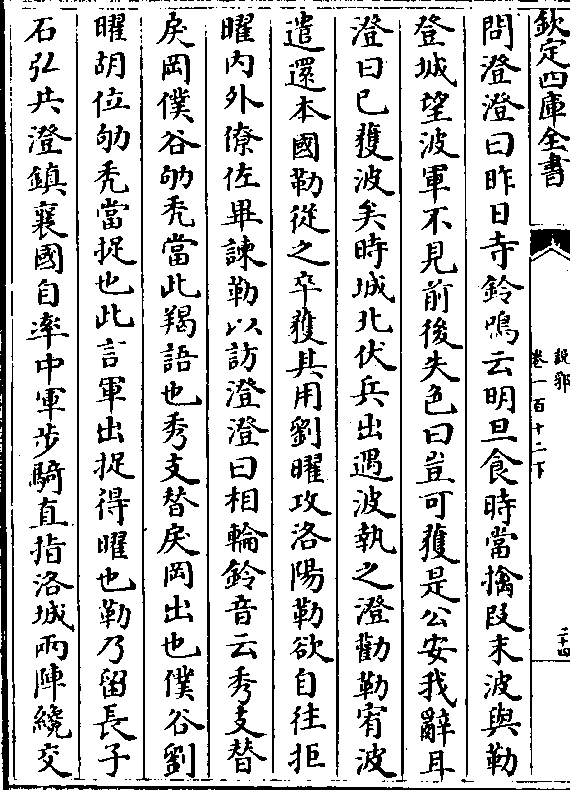 欽定四庫全書
說郛
卷一百十二下
二十四
問澄澄曰昨日寺鈴鳴云明旦食時當擒段末波與勒
登城望波軍不見前後失色曰豈可獲是公安我辭耳
澄曰已獲波矣時城北伏兵出遇波執之澄勸勒宥波
遣還本國勒從之卒獲其用劉曜攻洛陽勒欲自往拒
曜内外僚佐畢諫勒以訪澄澄曰相輪鈴音云秀支替
戾岡僕谷劬秃當此羯語也秀支替戾岡出也僕谷劉
曜胡位劬秃當捉也此言軍出捉得曜也勒乃留長子
石弘共澄鎮襄國自率中軍步騎直指洛城兩陣纔交